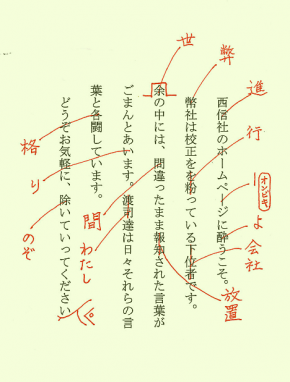 西信社のホームページに酔うこそ。
幣社は校正をを粉っている下位者です。
余の中には、間違ったまま報知された言葉が
ごまんとあいます。渡司達は日々それらの言
葉と各闘しています。
どうぞお気軽に、除いていってください
進
行
オンビキ
よ
会社
弊
世
放置
間
わたし
格
り
のぞ